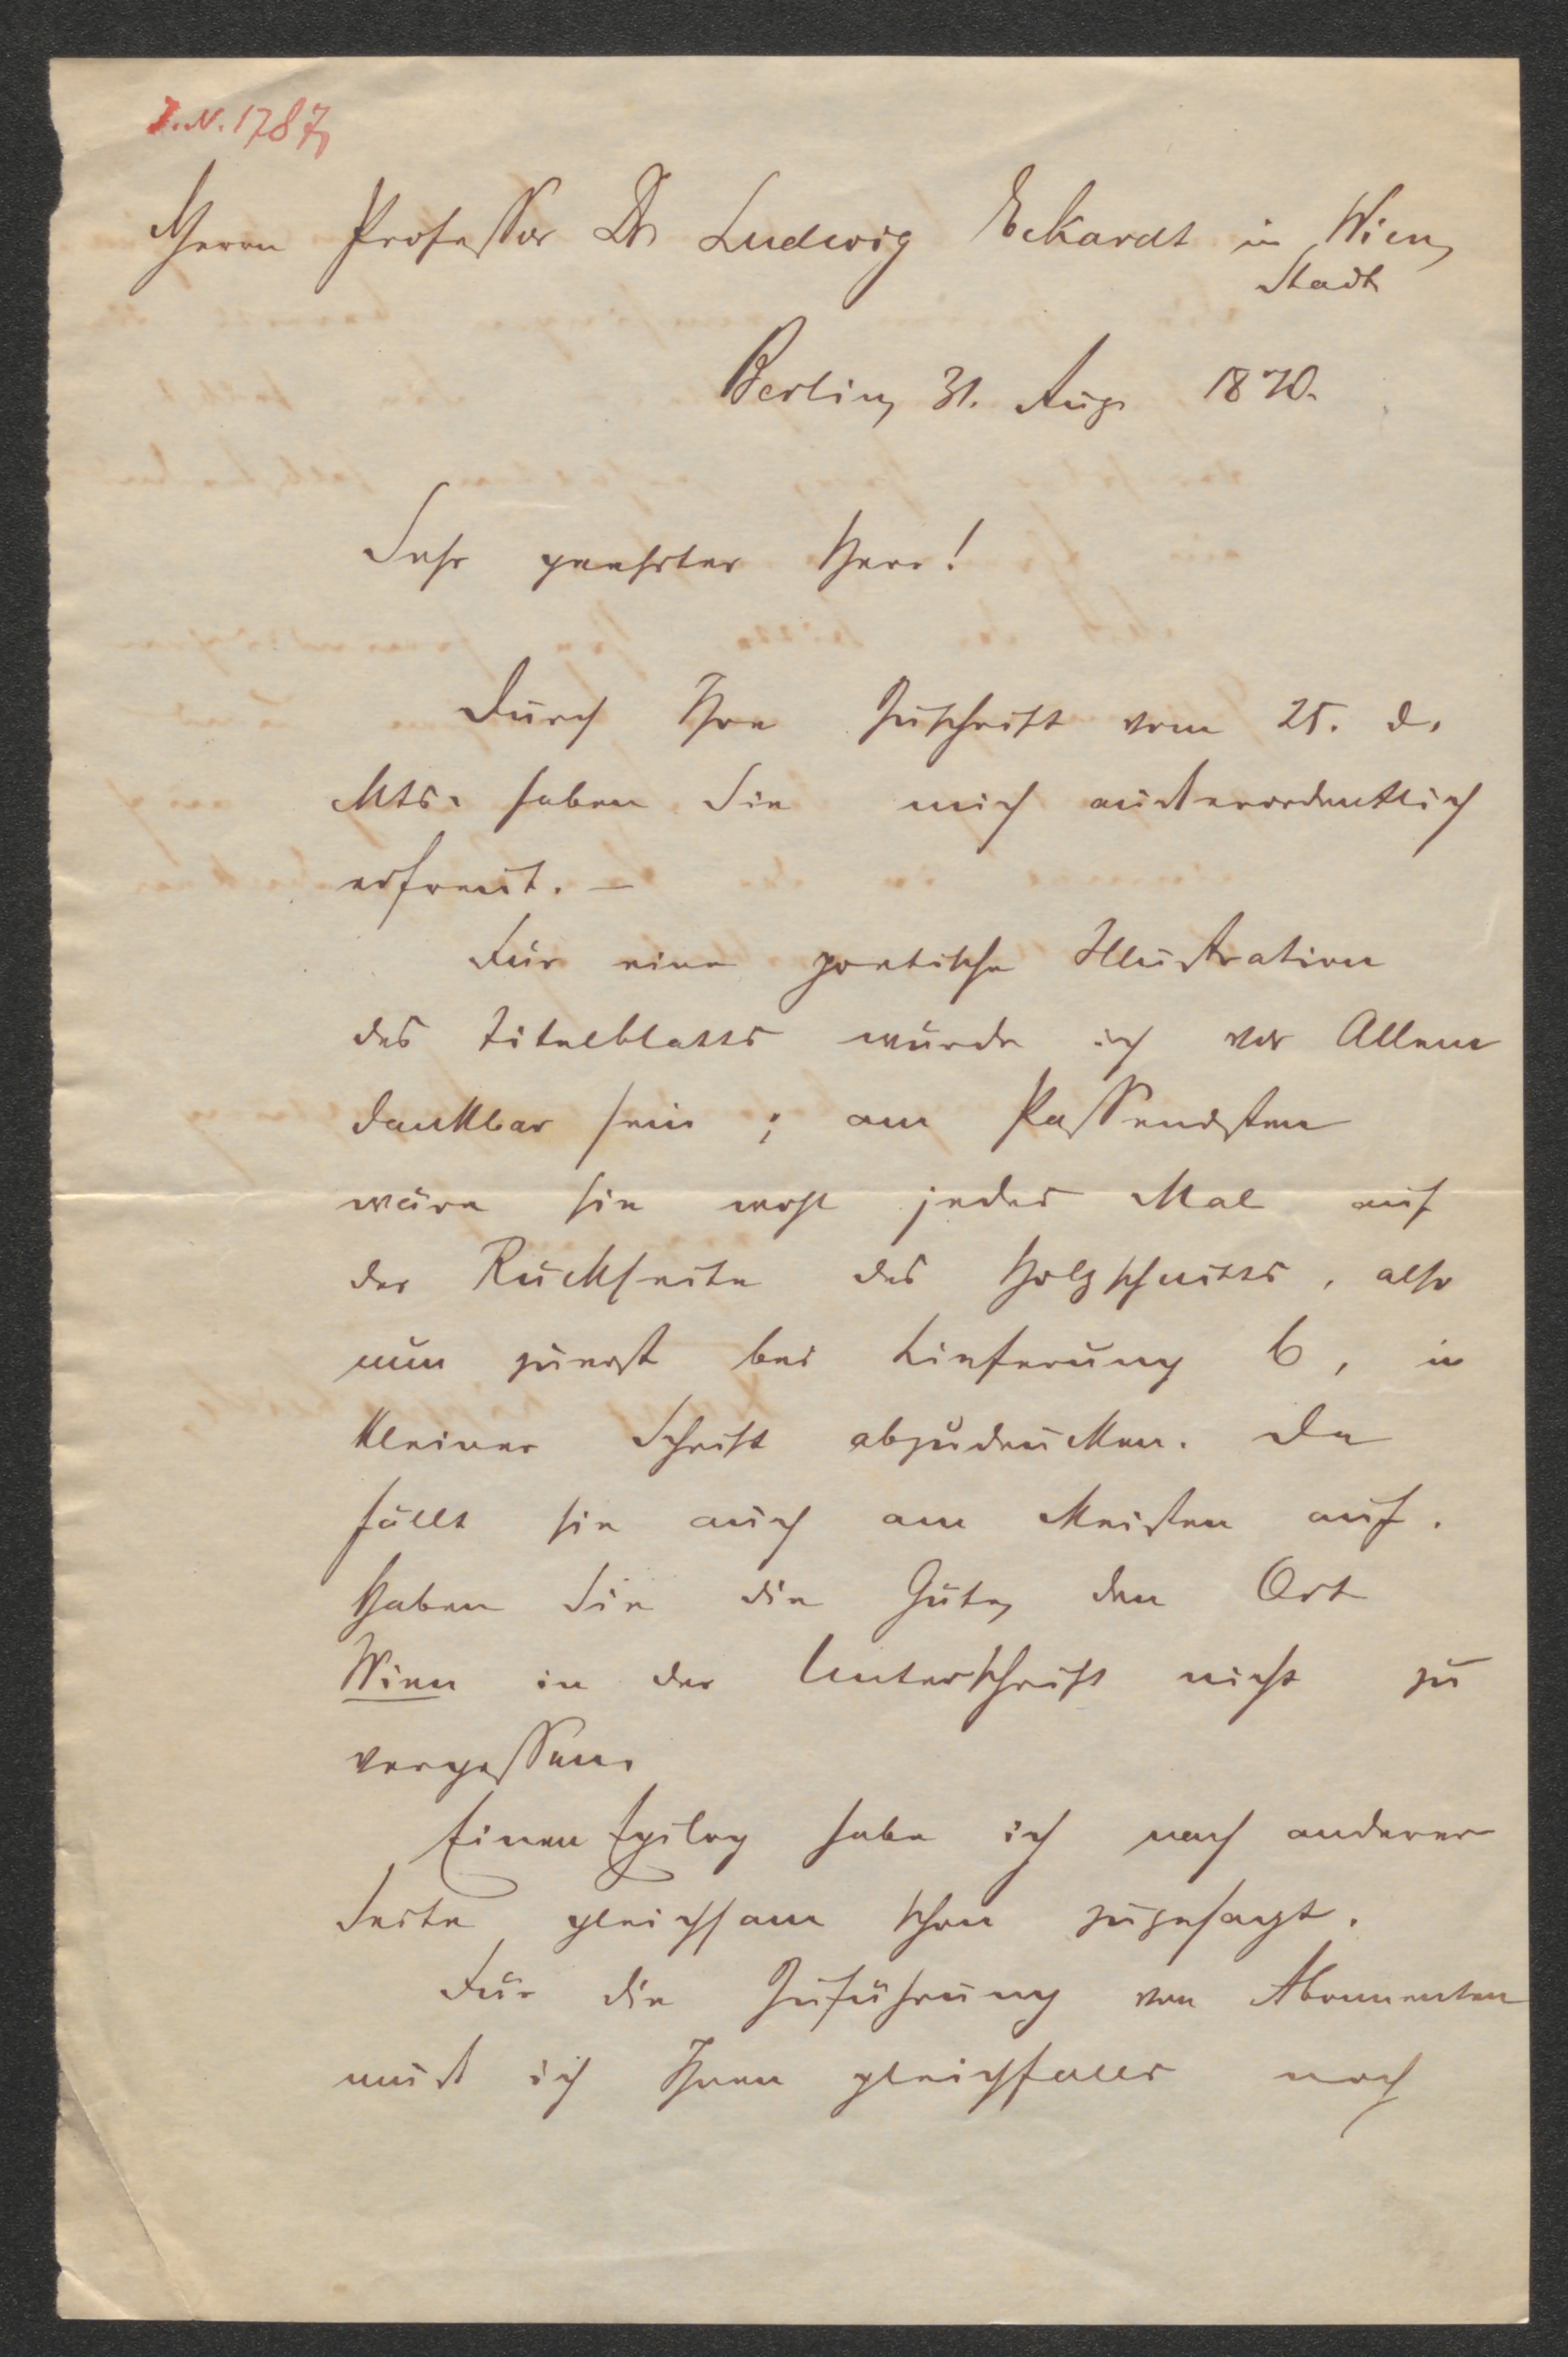 I.N. 1787,
Herrn Professor Dr Ludwig Eckardt in Wien,
Stadt
Berlin, 31. Aug. 1870.
Sehr geehrter Herr!
Durch Ihre Zuschrift vom 25. d.
Mts. haben Sie mich außerordentlich
erfreut. —
Für eine poetische Illustration
des Titelblatts würde ich vor Allem
dankbar sein; am Passendsten
wäre sie wohl jedes Mal auf
der Rückseite des Holzschnitts, also
nun zuerst bei Lieferung 6, in
kleiner Schrift abzudrucken. Da
fällt sie auch am Meisten auf.
Haben Sie die Güte, den Ort
Wien in der Unterschrift nicht zu
vergessen.
Einen Epilog habe ich nach anderer
Seite gleichsam schon zugesagt.
Für die Zuführung von Abonnenten
muß ich Ihnen gleichfalls noch